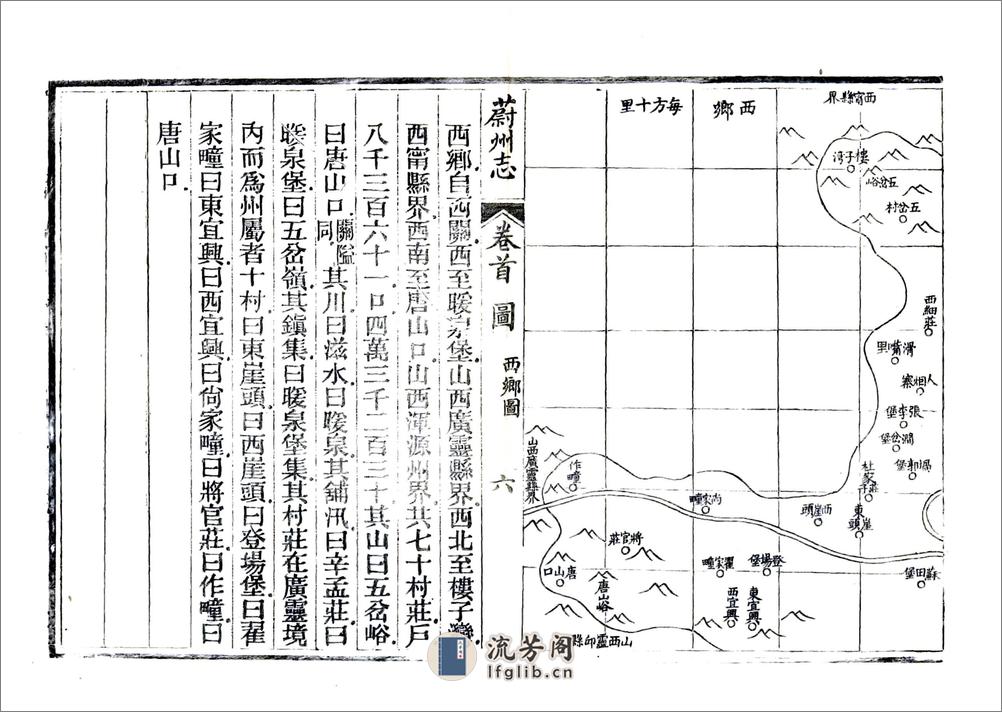 西寧縣界
西鄉
每方十里
樓子灣
五岔峪
五岔村
西細莊
滑嘴里
人烟寨
張李堡
澗岔堡
杜家莊子
東崖頭
西崖頭
尚家疃
作疃
山西廣靈縣界
蘇田堡
登場堡
東宜興
翟家疃
西宜興
將官莊
唐山峪
唐山口
山西靈邱縣
蔚州志
卷首
圖
西鄉圖
六
西鄉自西關西至暖泉堡山西廣靈縣界西北至樓子灣
西甯縣界西南至唐山口山西渾源州界共七十村莊戶
八千三百六十一口四萬三千二百三十其山曰五岔峪
曰唐山口關隘同其川曰滋水曰暖泉其舖汛曰辛孟莊曰
暖泉堡曰五岔嶺其鎮集曰暖泉堡集其村莊在廣靈境
內而爲州屬者十村曰東崖頭曰西崖頭曰登場堡曰翟
家疃曰東宜興曰西宜興曰尙家疃曰將官莊曰作疃曰
唐山口
流芳阁
lfglib.cn